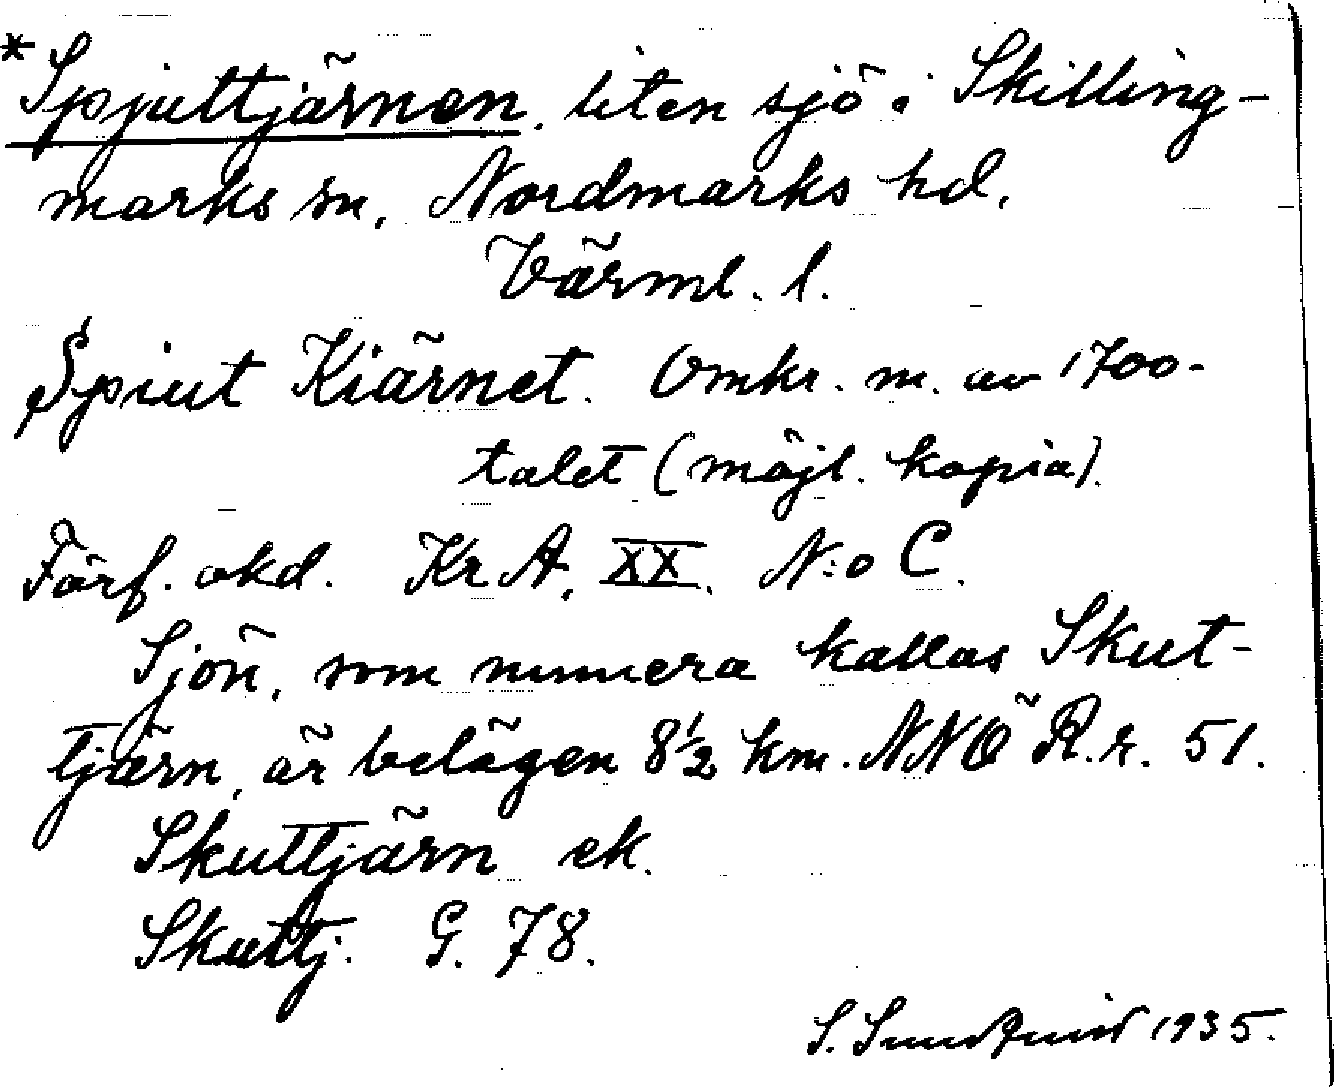 *Spjuttjärnen, liten sjö i Skilling-
marks sn, Nordmarks hd,
Värml. l.
Spiut Kiärnet. Omkr. m. av 1700-
talet (möjl. kopia).
Förf. okd. Kr A, XX. N:o C.
Sjön, som numera kallas Skut-
tjärn, är belägen 8½ km. NNÖ R.r. 51.
Skuttjärn ek.
Skuttj. G. 78.
S. Sundquist 1935.